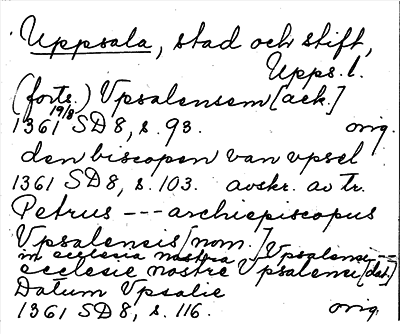 Uppsala, stad och stift,
Upps. l.
(forts.) Vpsalensem [ack.]
19/8
1361 SD 8, s. 93. orig.
den biscopen van vpsel
1361 SD 8, s. 103. avskr. av tr.
Petrus --- archiepiscopus
Vpsalensis [nom.]
in ecclesia nostra Vpsalensi --
ecclesie nostre Vpsalensi [dat.]
Datum Vpsalie
1361 SD 8, s. 116. orig.